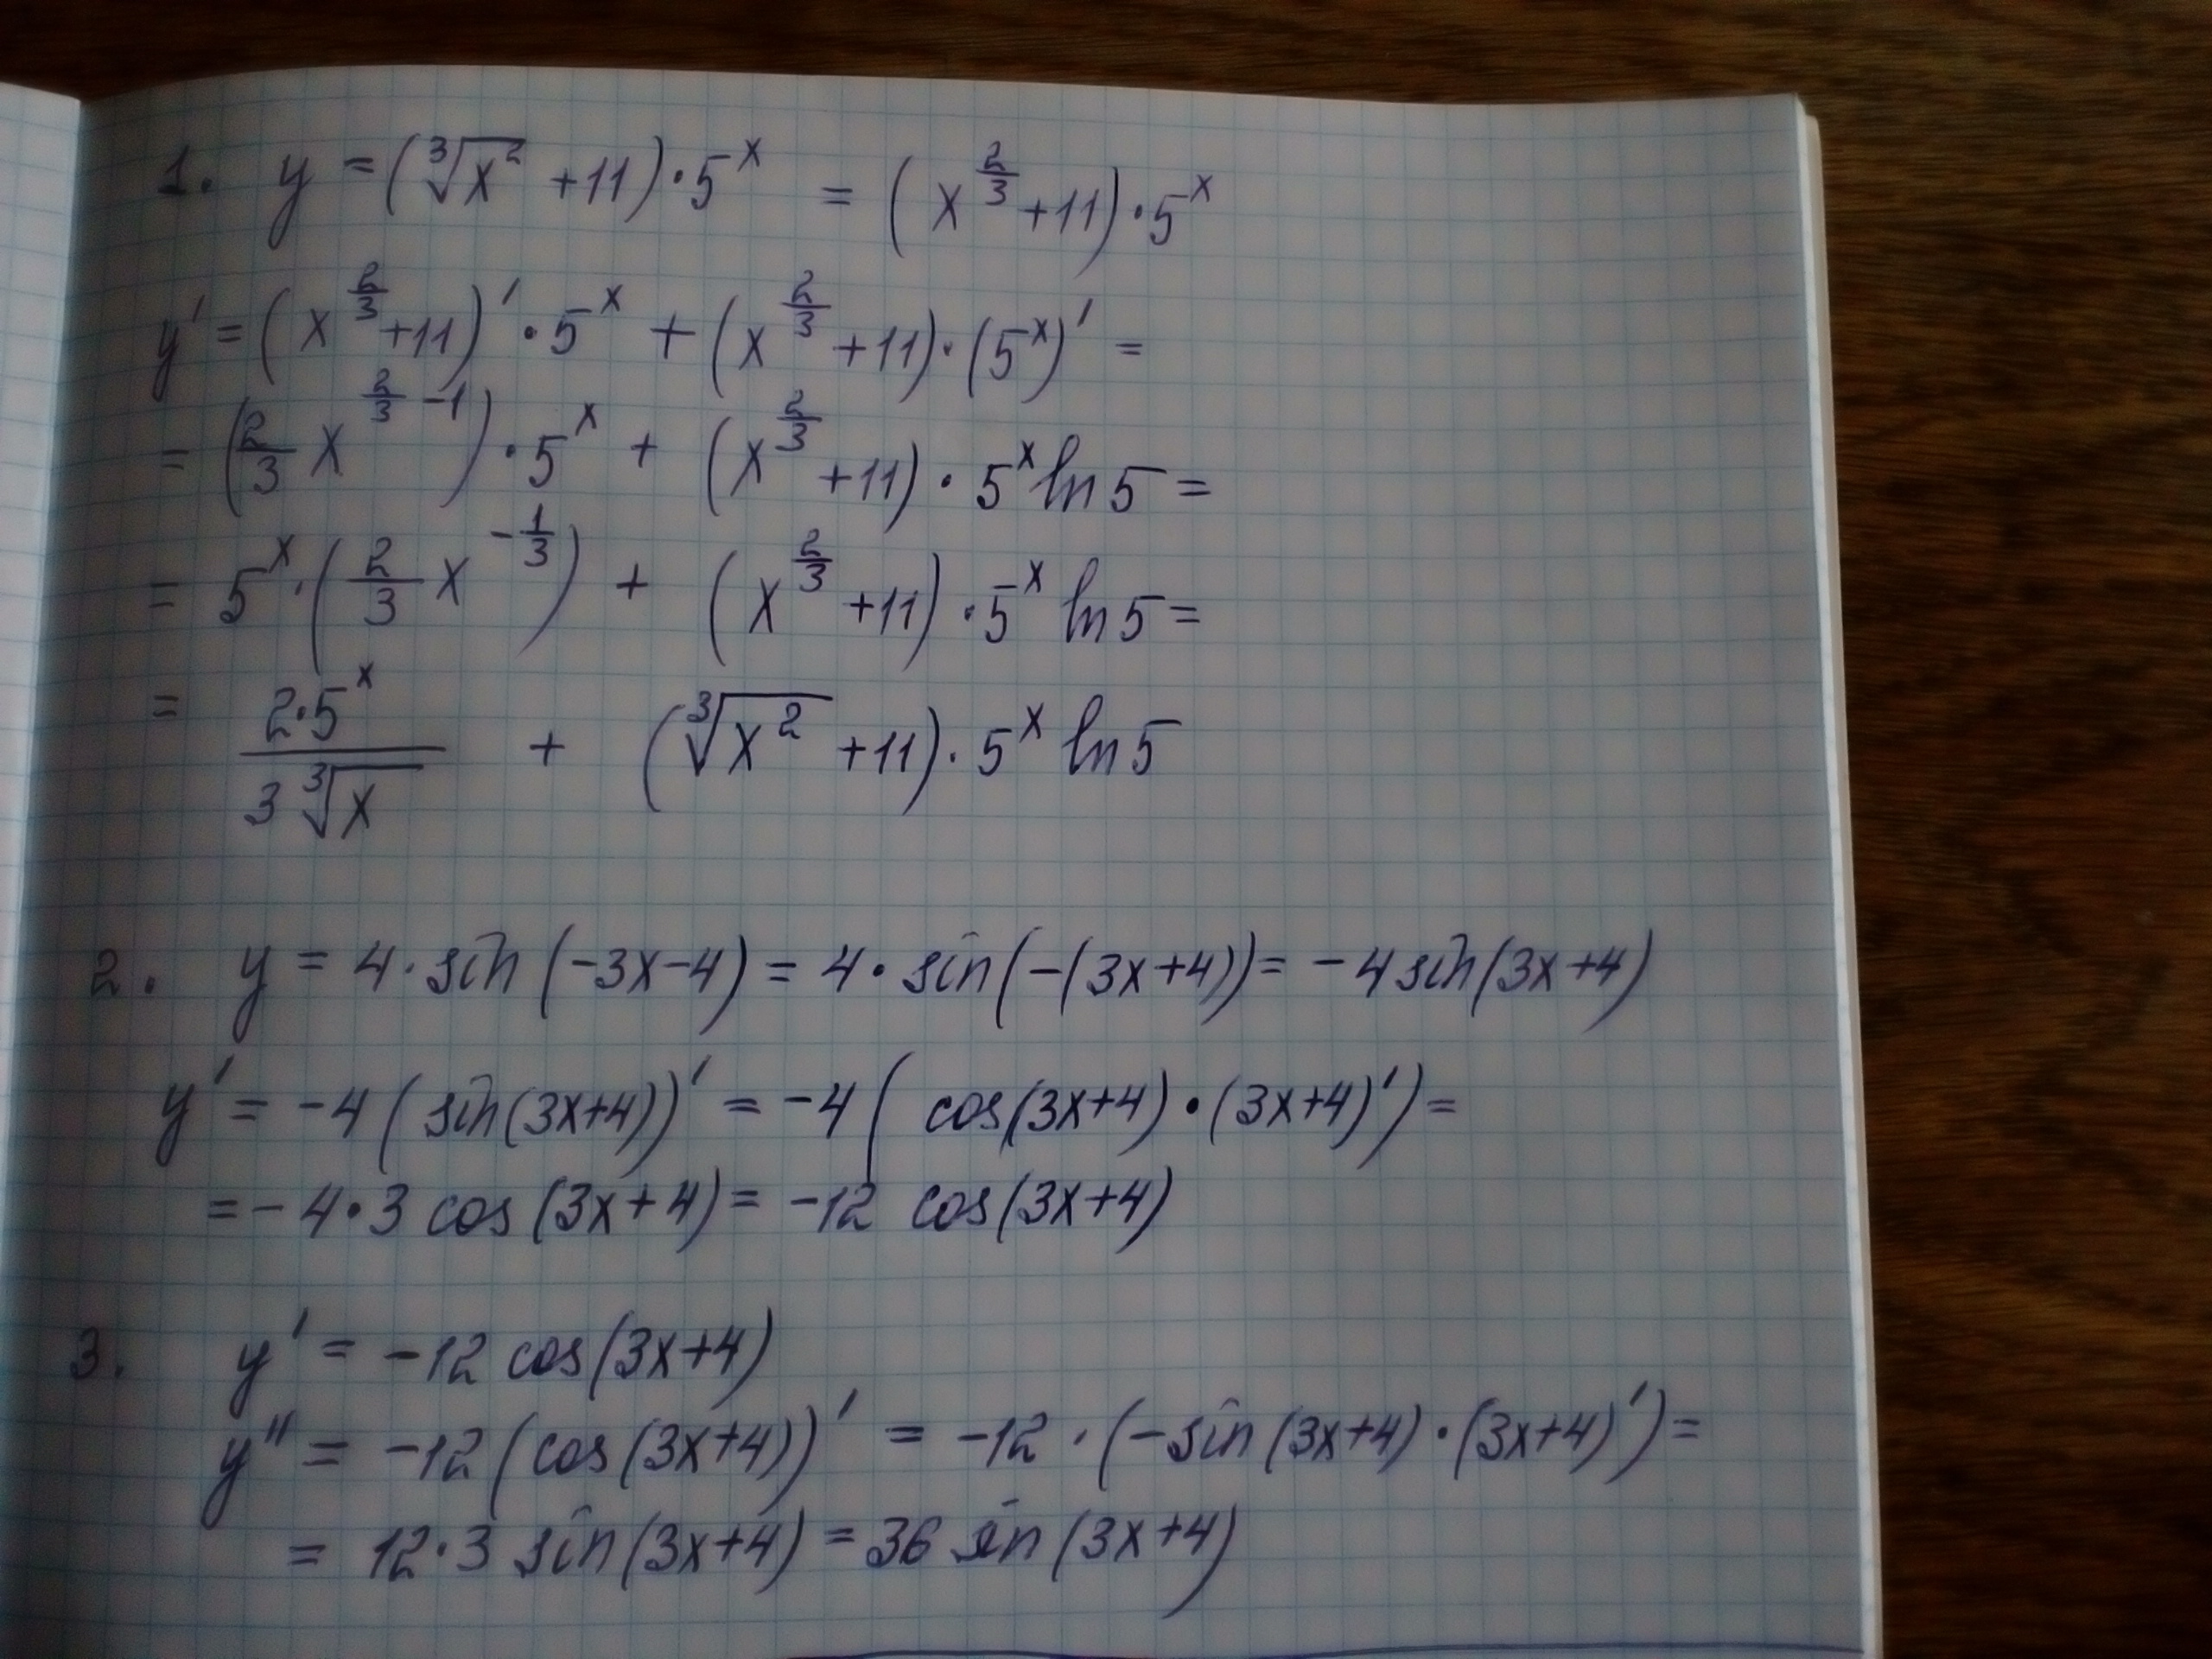 1. y = (∛x² + 11)·5ˣ = (x^(2/3) + 11)·5ˣ
y' = (x^(2/3) + 11)'·5ˣ + (x^(2/3) + 11)·(5ˣ)' =
= (2/3 x^(2/3 - 1))·5ˣ + (x^(2/3) + 11)·5ˣ ln 5 =
= 5ˣ·(2/3 x^(-1/3)) + (x^(2/3) + 11)·5ˣ ln 5 =
= 2·5ˣ / 3∛x + (∛x² + 11)·5ˣ ln 5
2. y = 4·sin(-3x-4) = 4·sin(-(3x+4)) = -4 sin(3x+4)
y' = -4(sin(3x+4))' = -4(cos(3x+4)·(3x+4)') =
= -4·3 cos(3x+4) = -12 cos(3x+4)
3. y' = -12 cos(3x+4)
y'' = -12(cos(3x+4))' = -12·(-sin(3x+4)·(3x+4)') =
= 12·3 sin(3x+4) = 36 sin(3x+4)